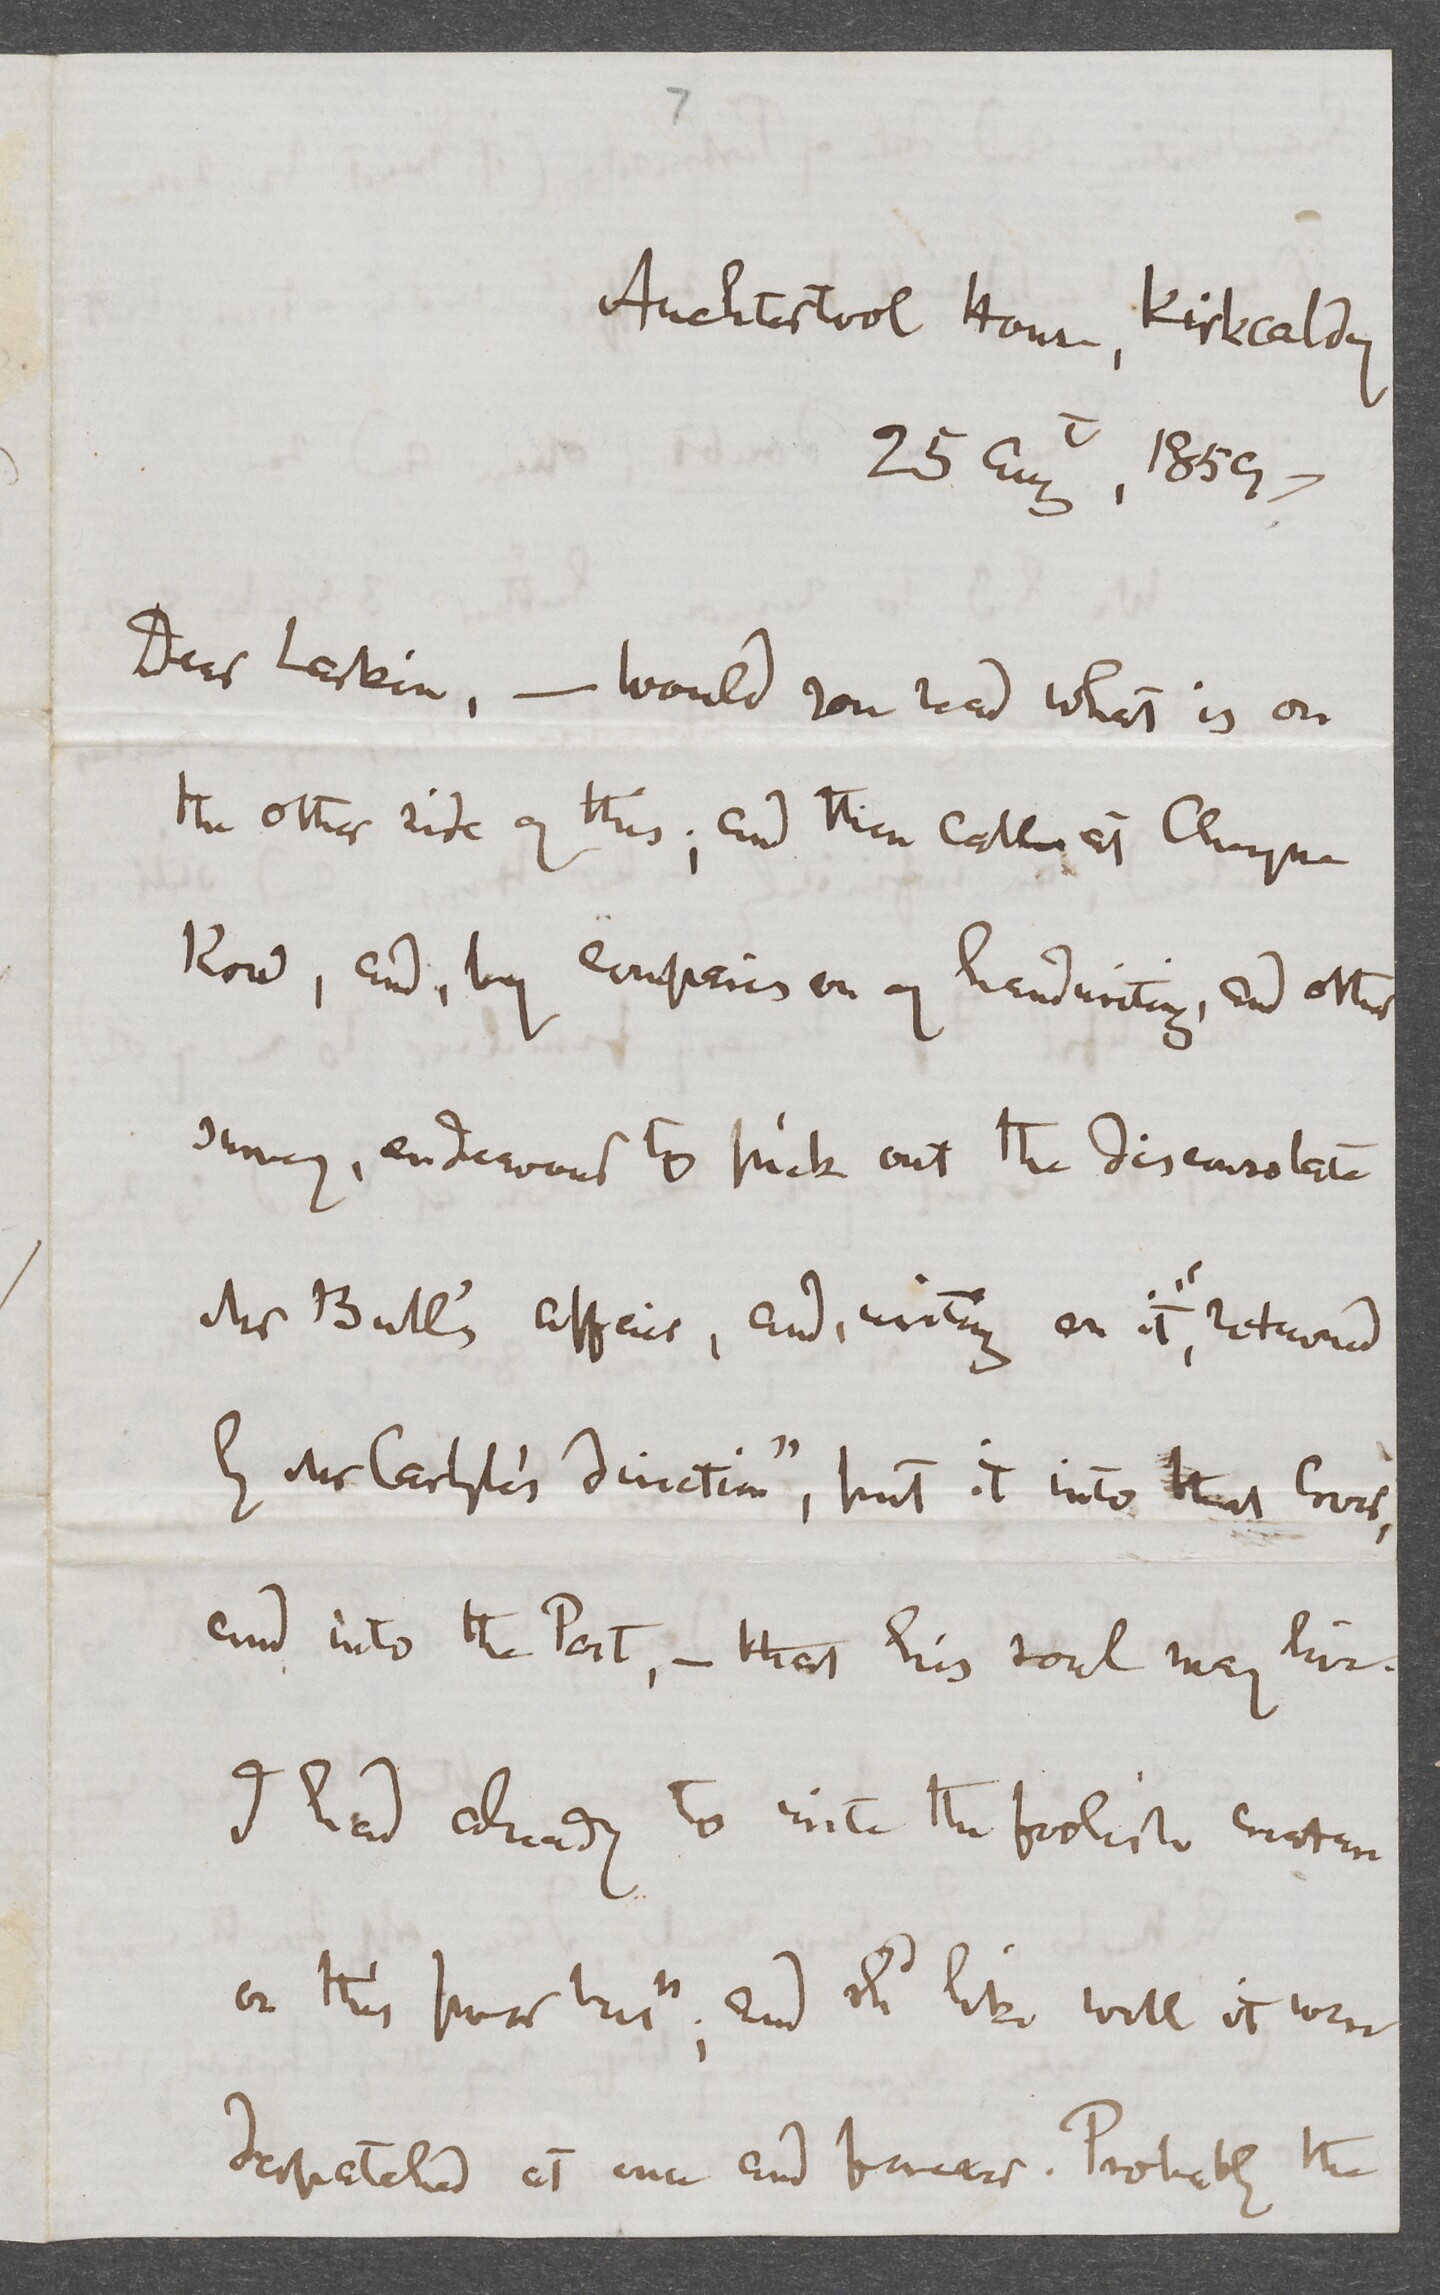 7
Auchtertool House, Kirkcaldy
25 Augt, 1859 –
Dear Larkin, — Would you read what is on
the other side of this; and then call at Cheyne
Row, and, by comparison of handwriting, and other
survey, endeavour to pick out the disconsolate
Mr Bull's affair, and, writing on it, "returned
by Mr Carlyle's direction", put it into that Cover,
and into the Post, – that his soul may live.
I had already to write the foolish creature
on this poor busss; and shd like well it were
despatched at once and forever. Probably the